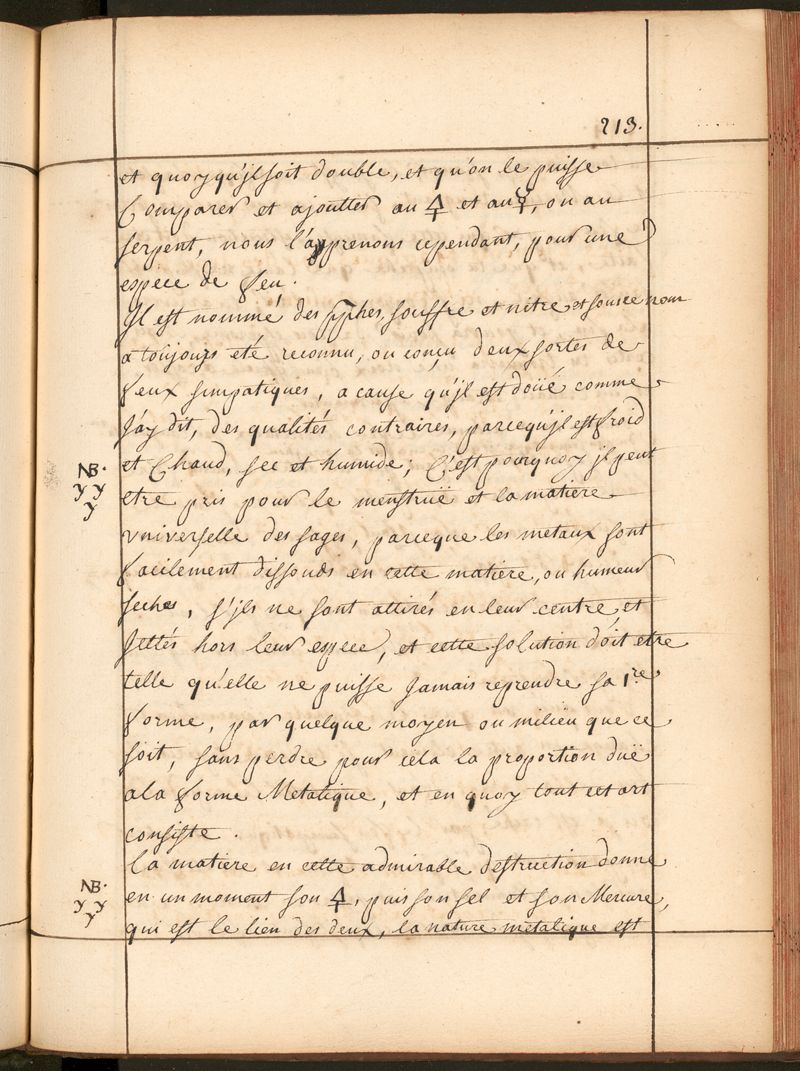 213.
et quoyqu'jl soit double, et qu'on le puisse
Comparer et ajoutter au 🜍 et au ☿, ou au
serpent, nous l'apprenons cependant, pour une
espece de feu.
Jl est nommé des pphes, souffre et nitre et sous ce nom
a toûjours eté reconnu, ou conçu deux sortes de
feux simpatiques, a cause qu'jl est doüé comme
J'ay dit, des qualités contraires, parcequ'jl est froid
et Chaud, sec et humide; C'est pourquoy jl peut
NB.
y y
y
etre pris pour le menstruë et la matiere
vniverselle des sages, parceque les metaux sont
facilement dissouds en cette matiere, ou humeur
seche, s'jls ne sont attirés en leur centre, et
Jettés hors leur espece, et cette solution doit etre
telle qu'elle ne puisse Jamais reprendre sa 1re
forme, par quelque moyen ou milieu que ce
soit, sans perdre pour cela la proportion duë
a la forme Metalique, et en quoy tout cet art
consiste.
la matiere en cette admirable destruction donne
NB.
y y
y
en un moment son 🜍, puis son sel et son Mercure,
qui est le lien des deux, la nature metalique est